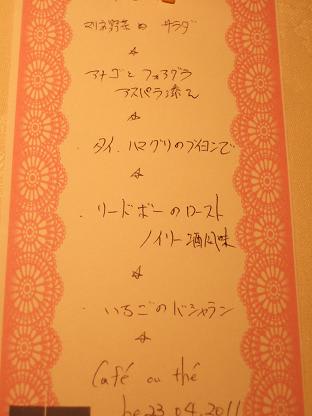 マリネ野菜の サラダ
アナゴとフォアグラ
アスパラ添え
・タイ、ハマグリのブイヨンで
・リードボーのロースト
ノイリー酒風味
・いちごのバシュラン
Café ou thé
Le 23 04 2011